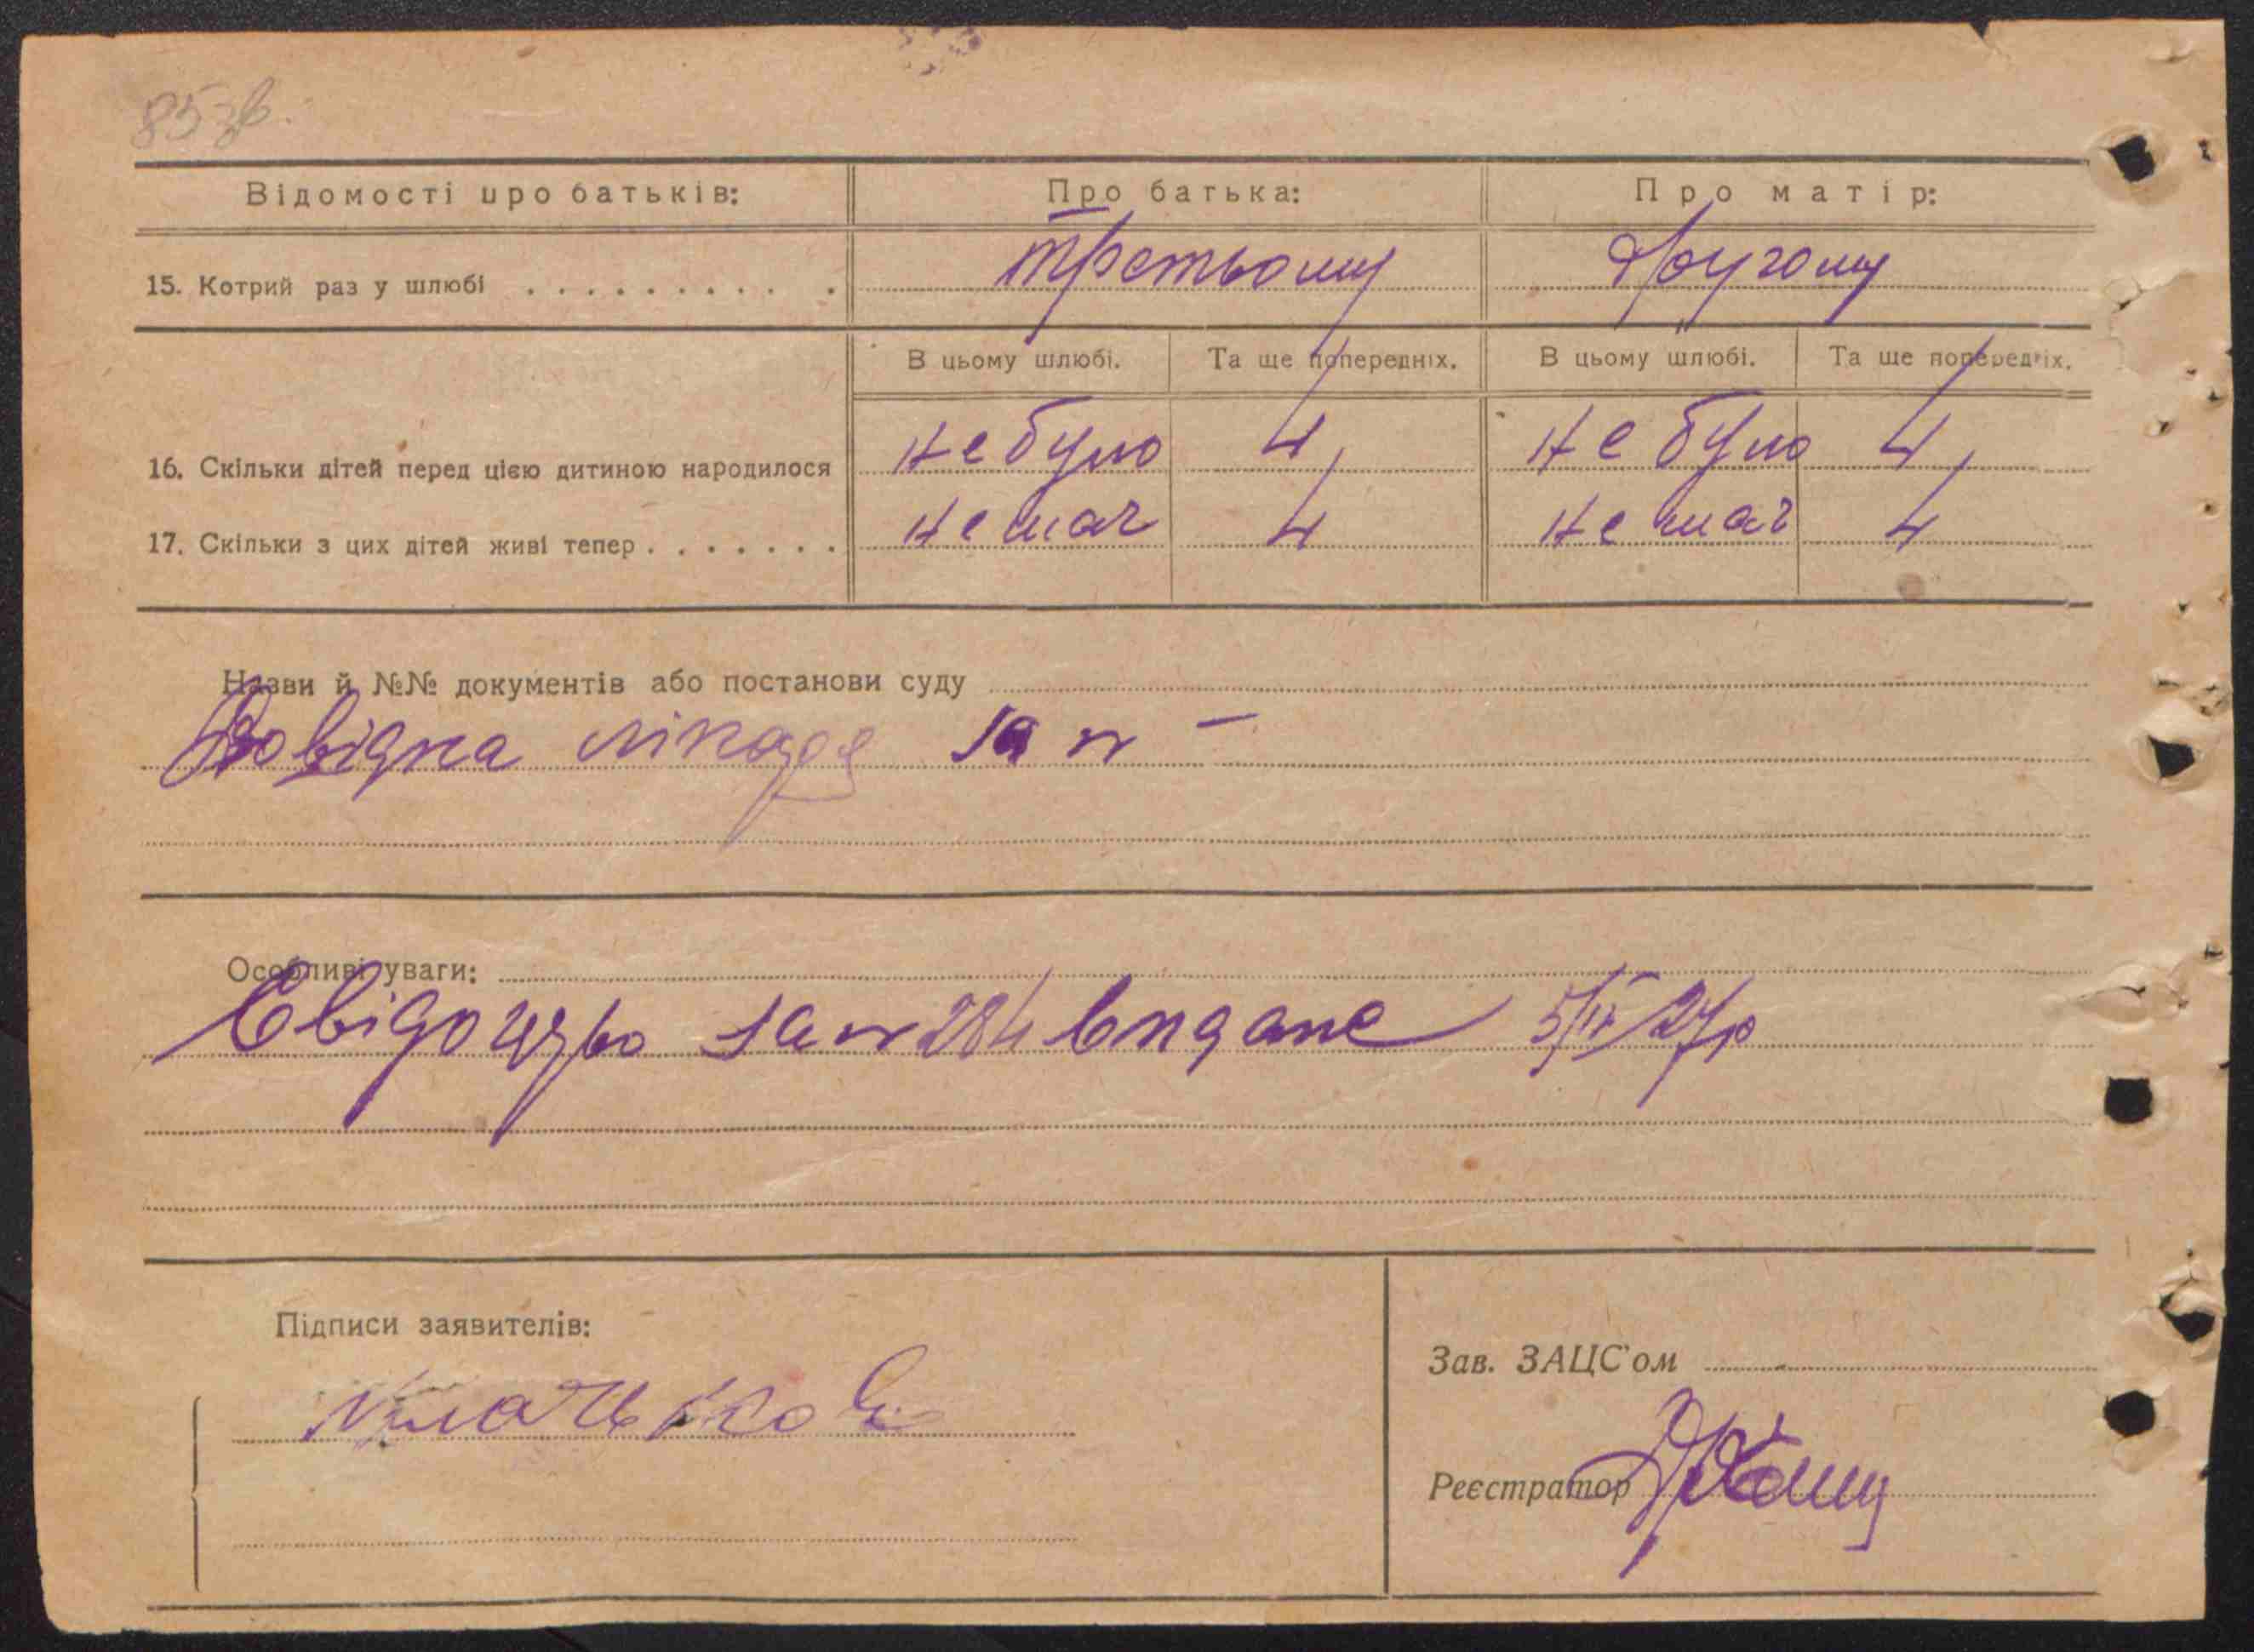 85 зв.
Відомості про батьків: Про батька: Про матір:
15. Котрий раз у шлюбі . . . . . . . . . . третьому другому
В цьому шлюбі. Та ще попередніх. В цьому шлюбі. Та ще попередніх.
16. Скільки дітей перед цією дитиною народилося не було 4 не було 4
17. Скільки з цих дітей живі тепер . . . . . . . немає 4 немає 4
Назви й №№ документів або постанови суду
Довідка лікаря за № —
Особливі уваги:
Свідоцтво за № 284 видане 5/IV 27 р
Підписи заявителів:
Зав. ЗАЦС'ом
Реєстратор